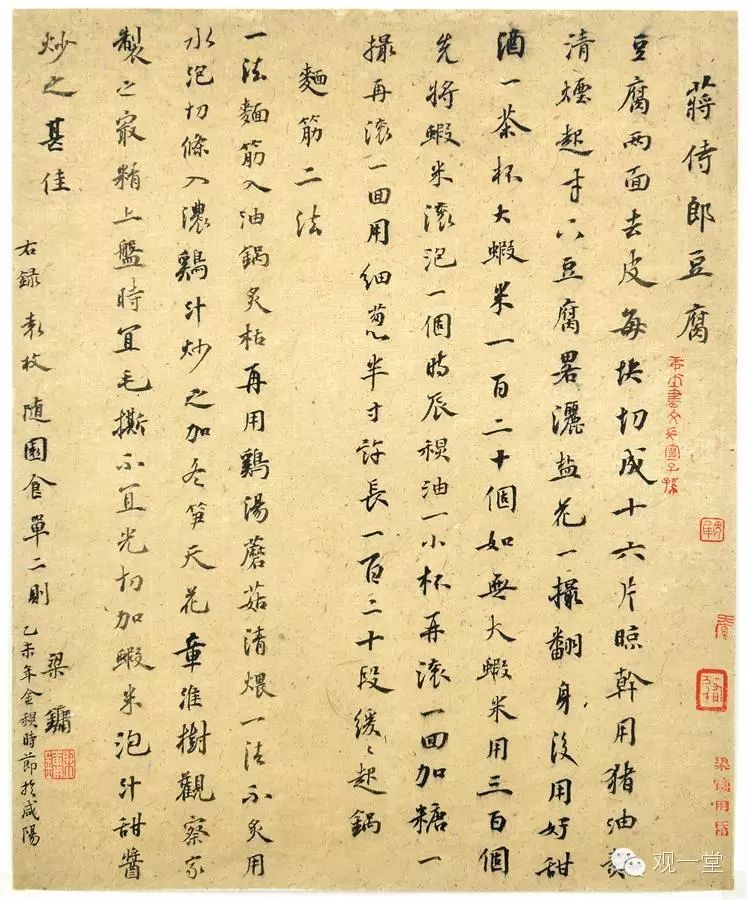 蔣侍郎豆腐
豆腐兩面去皮每块切成十六片晾幹用猪油熬
清煙起才下豆腐畧灑盐花一撮翻身後用好甜
酒一茶杯大蝦米一百二十個如無大蝦米用三百個
先將蝦米滚泡一個時辰秋油一小杯再滚一回加糖一
撮再滚一回用细葱半寸許長一百二十段缓〻起鍋
麵筋二法
一法麵筋入油鍋炙枯再用鷄湯蘑菇清煨一法不炙用
水泡切條入濃鷄汁炒之加冬笋天花章淮樹觀察家
製之最精上盤時宜毛撕不宜光切加蝦米泡汁甜醬
炒之甚佳
右録袁枚随園食單二則
梁鏞
乙未年金秋時節於咸陽
梁鏞用印
观一堂